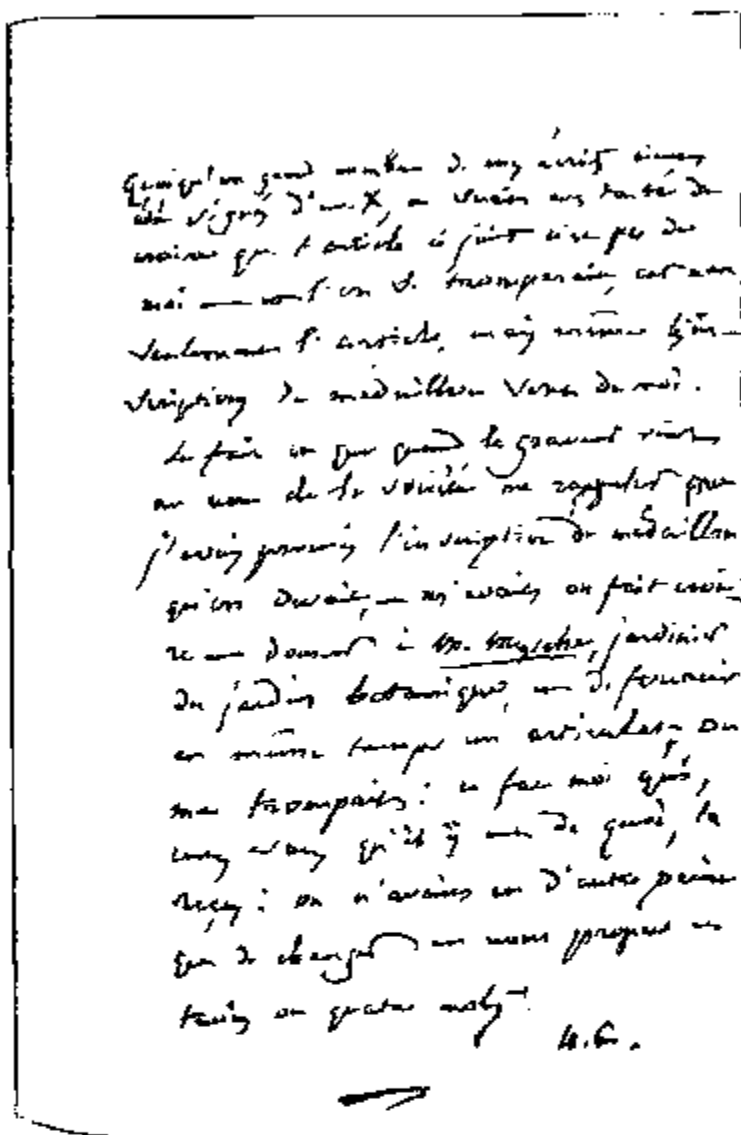 Quoiqu'un grand nombre de mes écrits aient
été signés d'un X, on serait tenté de
croire que l'article ci joint n'est pas de
moi — l'on se tromperait, car non
seulement l'article, mais même l'in-
scription du médaillon vient de moi.
Le fait est que quand le graveur vint
au nom de la société me rappeler que
j'avais promis l'inscription du médaillon
qu'on devait, — m'avait on fait croi-
re — donner à M., jardinier
du jardin botanique, et de fournir
en même temps un article, on
me trompait: ce fut moi qui,
qu'il y de quoi, le
reçus: on n'avait eu d'autre peine
que de changer en mon propre
trois ou quatre mots.